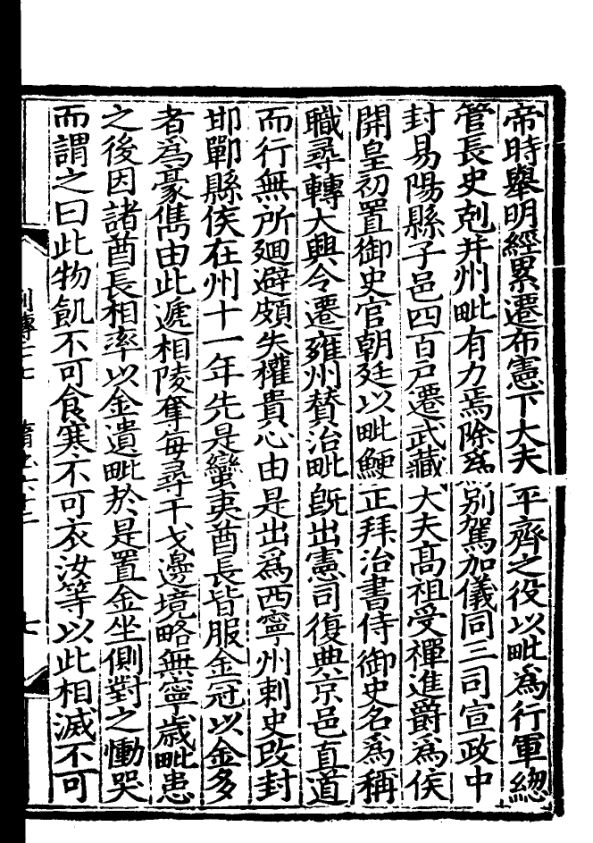 帝時舉明經累遷布憲下大夫平齊之役以毗爲行軍總
管長史剋并州毗有力焉除爲別駕加儀同三司宣政中
封易陽縣子邑四百戶遷武藏大夫高祖受禪進爵爲侯
開皇初置御史官朝廷以毗鯁正拜治書侍御史名爲稱
職尋轉大興令遷雍州贊治毗旣出憲司復典京邑直道
而行無所廻避頗失權貴心由是出爲西寧州刺史改封
邯鄲縣侯在州十一年先是蠻夷酋長皆服金冠以金多
者爲豪雋由此遞相陵奪每尋干戈邊境略無寧歲毗患
之後因諸酋長相率以金遺毗於是置金坐側對之慟哭
而謂之曰此物飢不可食寒不可衣汝等以此相滅不可
列傳二十七
七